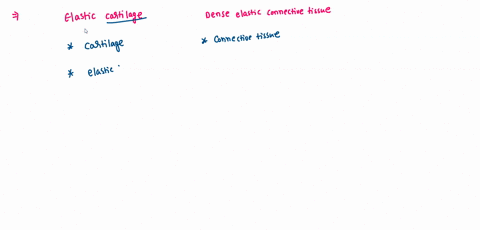 ⇒ Elastic cartilage Dense elastic connective tissue
* cartilage * connective tissue
* elastic